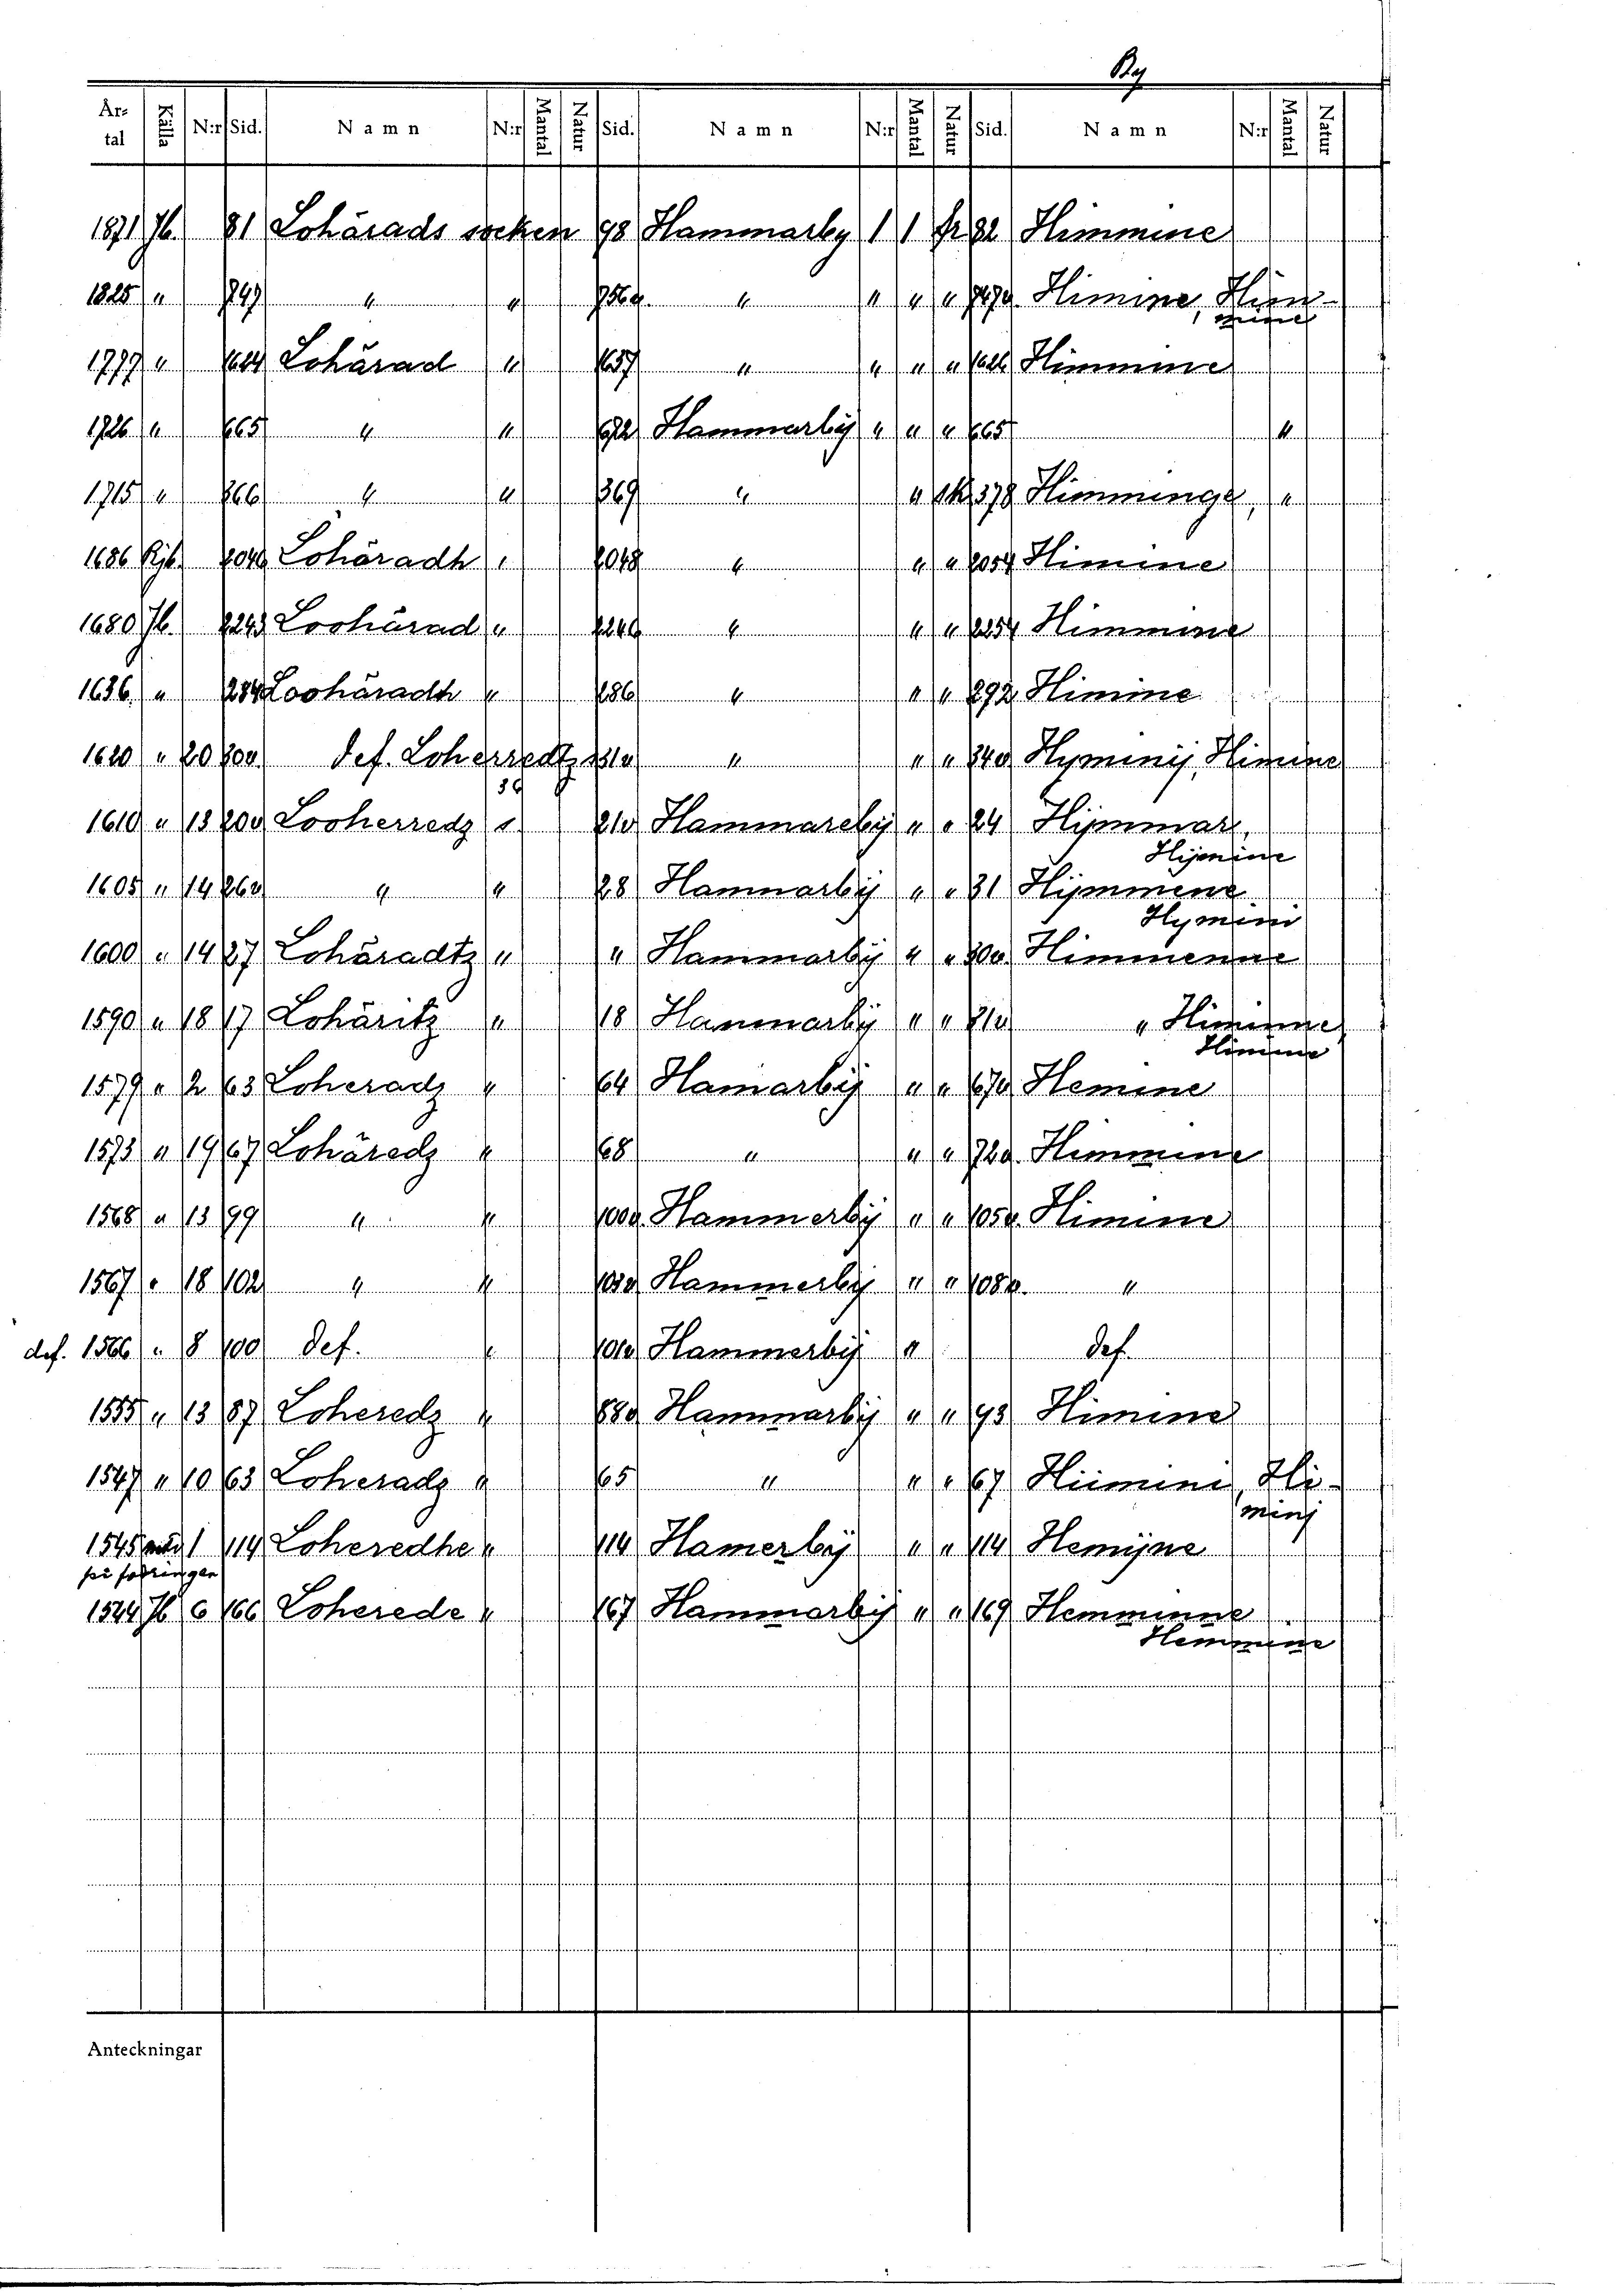 By
Årtal Källa N:r Sid. Namn N:r Mantal Natur Sid. Namn N:r Mantal Natur Sid. Namn N:r Mantal Natur
1871 Jb. 81 Lohärads socken 98 Hammarby 1 1 fr 82 Himmine
1825 " 749 " " 756 v. " " " " 747 v. Himine, Him-
mine
1777 " Lohärad " 657 " " " " Himmine
1726 " 665 " " 672 Hammarbÿ " " " 665 "
1715 " 366 " " 369 " " sk 378 Himminge, "
1686 Rjb. Lohäradh " 2048 " " " 2054 Himine
1680 Jb. 2243 Loohärad " " " " 2254 Himmine
1636 " 284 Loohäradh " 286 " " " 292 Himine
1620 " 20 30v def. Loherredtz 31v " " " 34v Hyminij, Himine
34
1610 " 13 20v Looherredz " 21v Hammareby " " 24 Hijmmar,
Hijmine
1605 " 14 26v " " 28 Hammarbÿ " " 31 Hijmmene
Hymini
1600 " 14 27 Lohäradtz " " Hammarbÿ " " 30v Himmenne
1590 " 18 17 Lohäritz " 18 Hammarbÿ " " 21v " Himinne
Himine
1579 " 2 63 Loheradz " 64 Hamarbÿ " " 67v Hemine
1573 " 19 67 Lohäredz " 68 " " " 72v Himmine
1568 " 13 99 " " 100v Hammerbÿ " " 105v Himine
1567 " 18 102 " " 103v Hammerbÿ " " 108v "
def. 1566 " 8 100 def. " 101v Hammerbÿ " def.
1555 " 13 87 Loheredz " 88v Hammarbÿ " " 93 Himine
1547 " 10 63 Loheradz " 65 " " " 67 Hiimini, Hi-
minj
1545 1 114 Loheredhe " 114 Hamerbÿ " " 114 Hemijne
1544 Jb 6 166 Loherede " 167 Hammarbÿ " " 169 Hemminne
Hemmine
Anteckningar